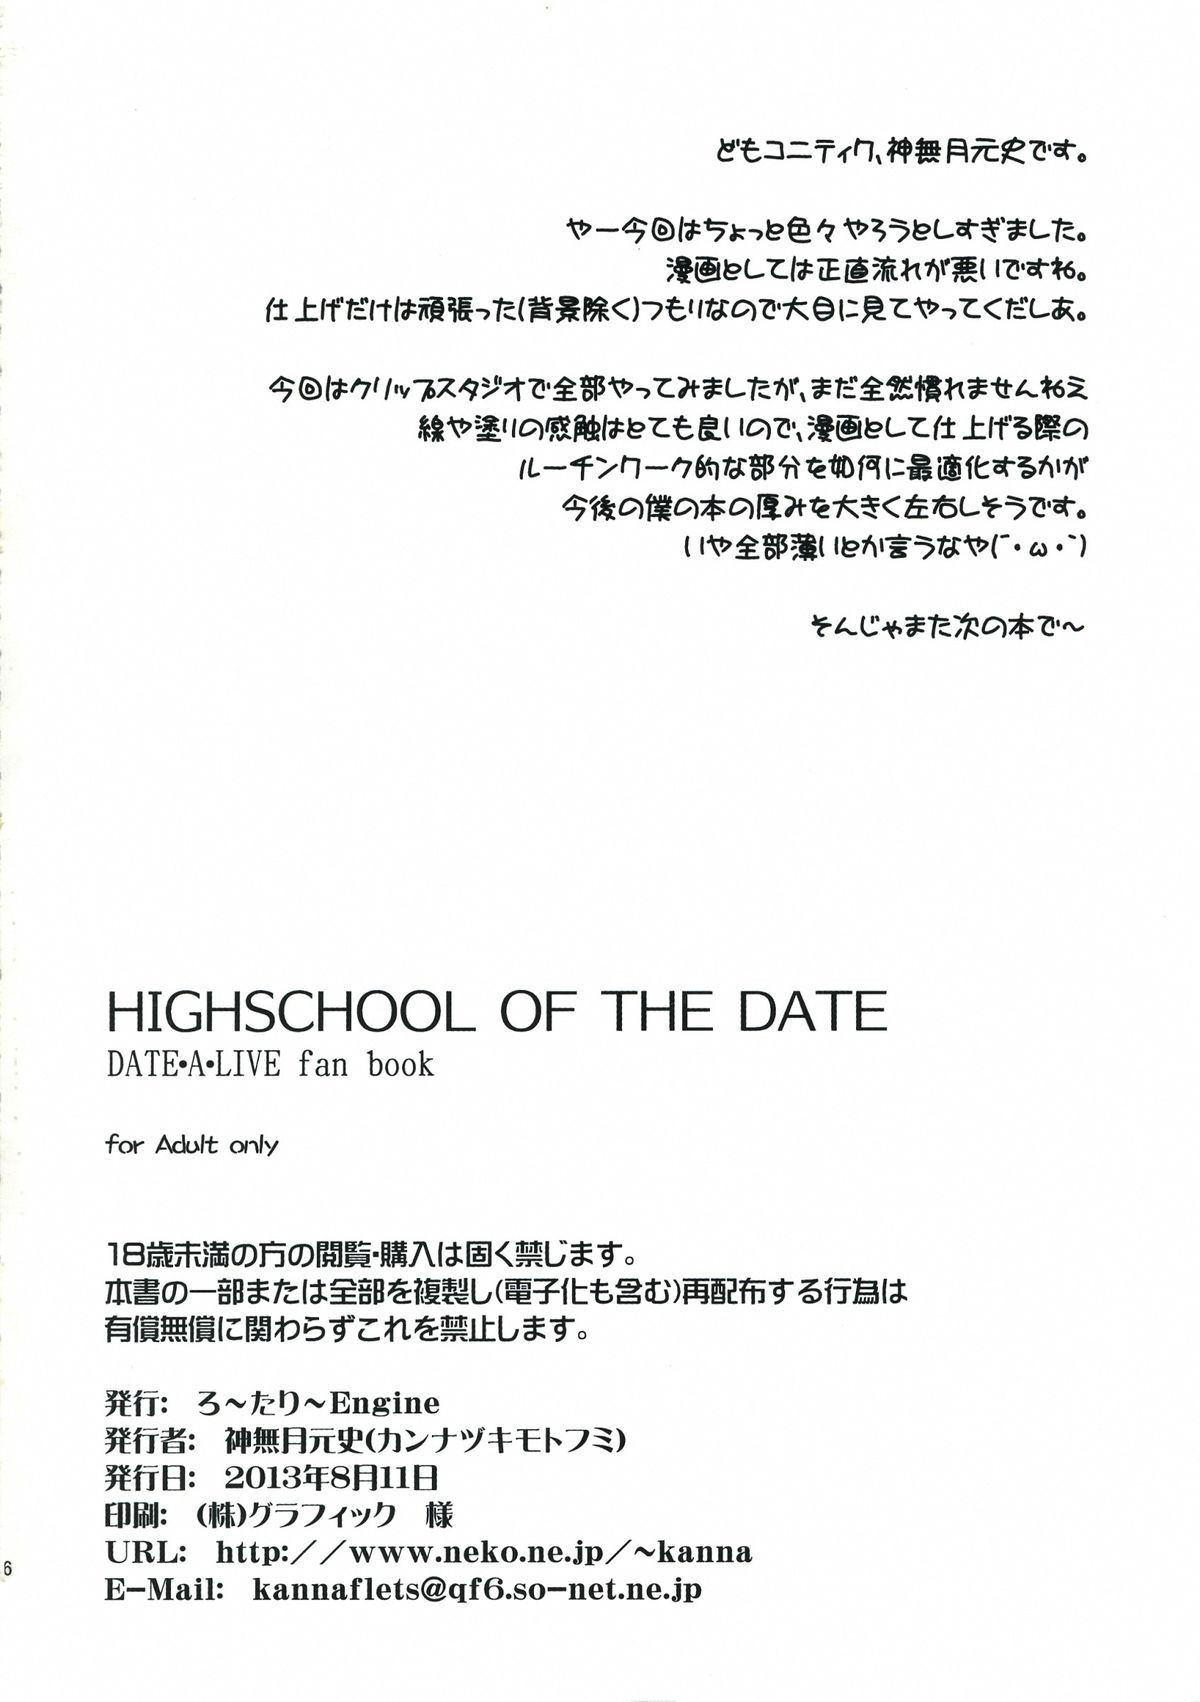 どもコニティク、神無月元史です。
やー今回はちょっと色々やろうとしすぎました。
漫画としては正直流れが悪いですね。
仕上げだけは頑張った(背景除く)つもりなので大目に見てやってくだしあ。
今回はクリップスタジオで全部やってみましたが、まだ全然慣れませんねえ
線や塗りの感触はとても良いので、漫画として仕上げる際の
ルーチンワーク的な部分を如何に最適化するかが
今後の僕の本の厚みを大きく左右しそうです。
いや全部薄いとか言うなや(´・ω・`)
そんじゃまた次の本で〜
HIGHSCHOOL OF THE DATE
DATE・A・LIVE fan book
for Adult only
18歳未満の方の閲覧・購入は固く禁じます。
本書の一部または全部を複製し(電子化も含む)再配布する行為は
有償無償に関わらずこれを禁止します。
発行: ろ〜たり〜Engine
発行者: 神無月元史(カンナヅキモトフミ)
発行日: 2013年8月11日
印刷: (株)グラフィック 様
URL: http://www.neko.ne.jp/~kanna
E-Mail: kannaflets@qf6.so-net.ne.jp
6